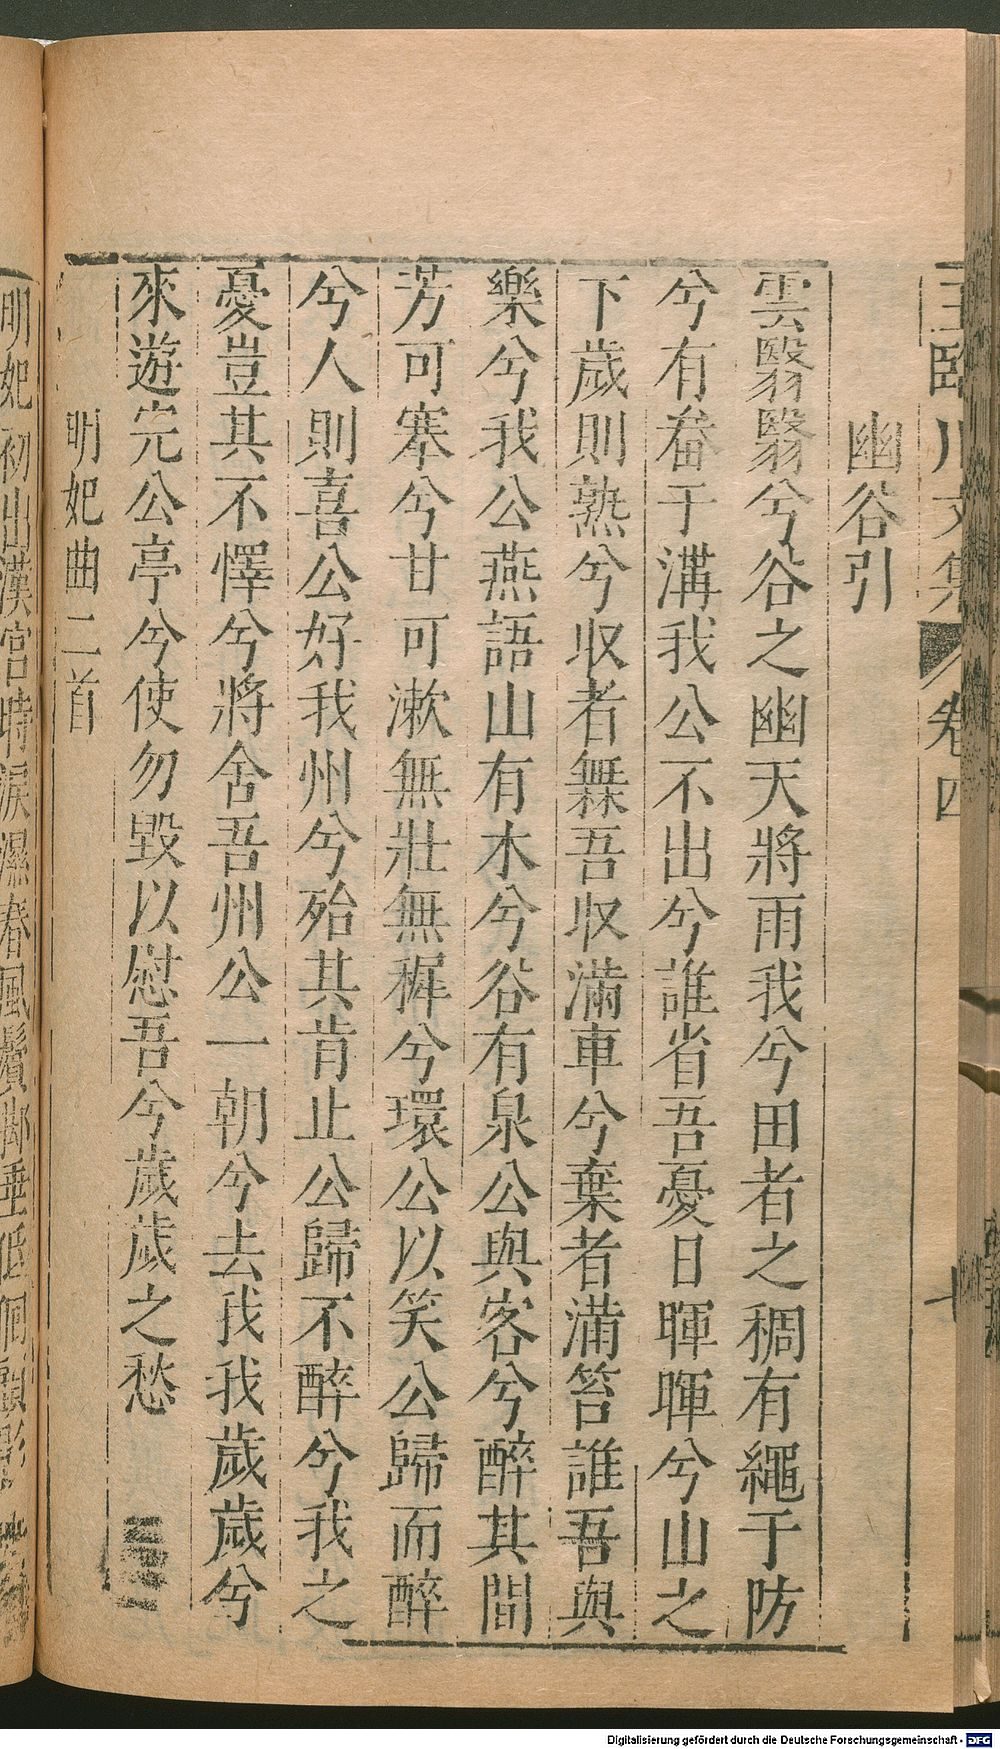 王臨川文集 卷四
幽谷引
雲翳翳兮谷之幽天將雨我兮田者之稠有繩于防
兮有畚于溝我公不出兮誰省吾憂日暉暉兮山之
下歲則熟兮収者舞吾収滿車兮棄者滿筥誰吾與
樂兮我公燕語山有木兮谷有泉公與客兮醉其間
芳可搴兮甘可漱無壯無穉兮環公以笑公歸而醉
兮人則喜公好我州兮殆其肯止公歸不醉兮我之
憂豈其不懌兮將舍吾州公一朝兮去我我歲歲兮
來遊完公亭兮使勿毀以慰吾兮歲歲之愁
明妃曲二首
明妃初出漢宮時淚濕春風鬢脚垂低徊顧影
Digitalisierung gefördert durch die Deutsche Forschungsgemeinschaft - DFG